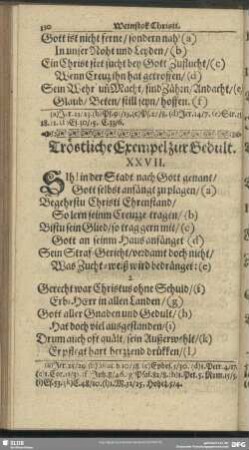 130 Weinstok Christi.
Gott ist nicht ferne/ sondern nah (a)
In unser Noht und Leyden/ (b)
Ein Christ siet sucht bey Gott Zuflucht/ (c)
Wenn Creuz ihn hat getroffen/ (d)
Sein Wehr uñ Macht/ sind Zähren/ Andacht/ (e)
Glaub/ Beten/ still seyn/ hoffen. (f)
Tröstliche Exempel zur Gedult.
XXVII.
SIh! in der Stadt nach Gott genant/
Gott selbst anfängt zu plagen/ (a)
Begehrstu Christi Ehrenstand/
So lern seinm Creuze tragen/ (b)
Bistu sein Glied/ so trag gern mit/ (c)
Gott an seinm Haus anfänget (d)
Sein Straf-Gericht/ verdamt doch nicht/
Was Zucht-weiß wird bedränget: (e)
2.
Gerecht war Christus ohne Schuld/ (f)
Erb-Herr in allen Landen/ (g)
Gott aller Gnaden und Gedult/ (h)
Hat doch viel ausgestanden/ (i)
Drum auch oft quält, sein Außerwehlt/ (k)
Er pflegt hart herzend drükken/ (l)
SLUB